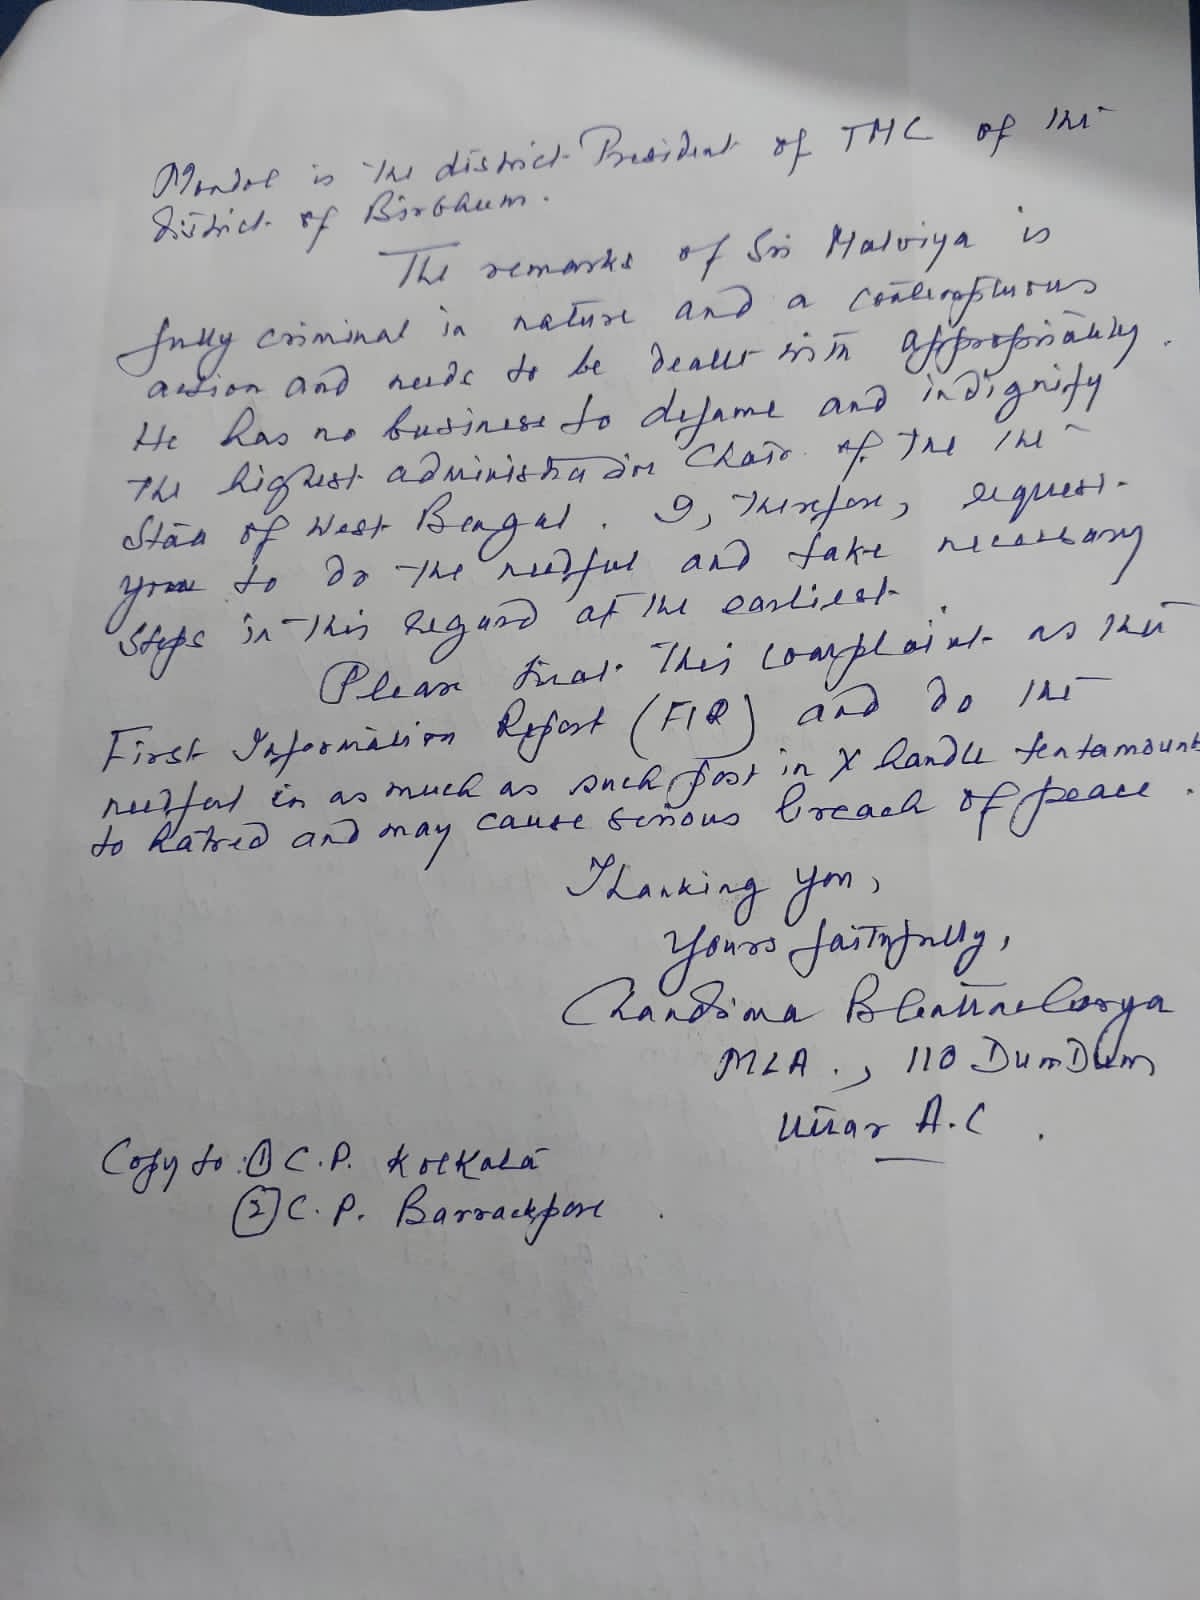 Mondol is the district President of TMC of the
district of Birbhum.
The remarks of Sri Malviya is
fully criminal in nature and a contemptuous
action and needs to be dealt with appropriately.
He has no business to defame and indignify
the highest administration Chair of the the
State of West Bengal. I, therefore, request
you to do the needful and take necessary
steps in this regard at the earliest.
Please treat this complaint as the
First Information Report (FIR) and do the
needful in as much as such post in X handle tentamounts
to hatred and may cause serious breach of peace.
Thanking you,
Yours faithfully,
Chandrima Bhattacharya
MLA., 110 DumDum
Uttar A.C.
Copy to : ① C.P. Kolkata
② C.P. Barrackpore.